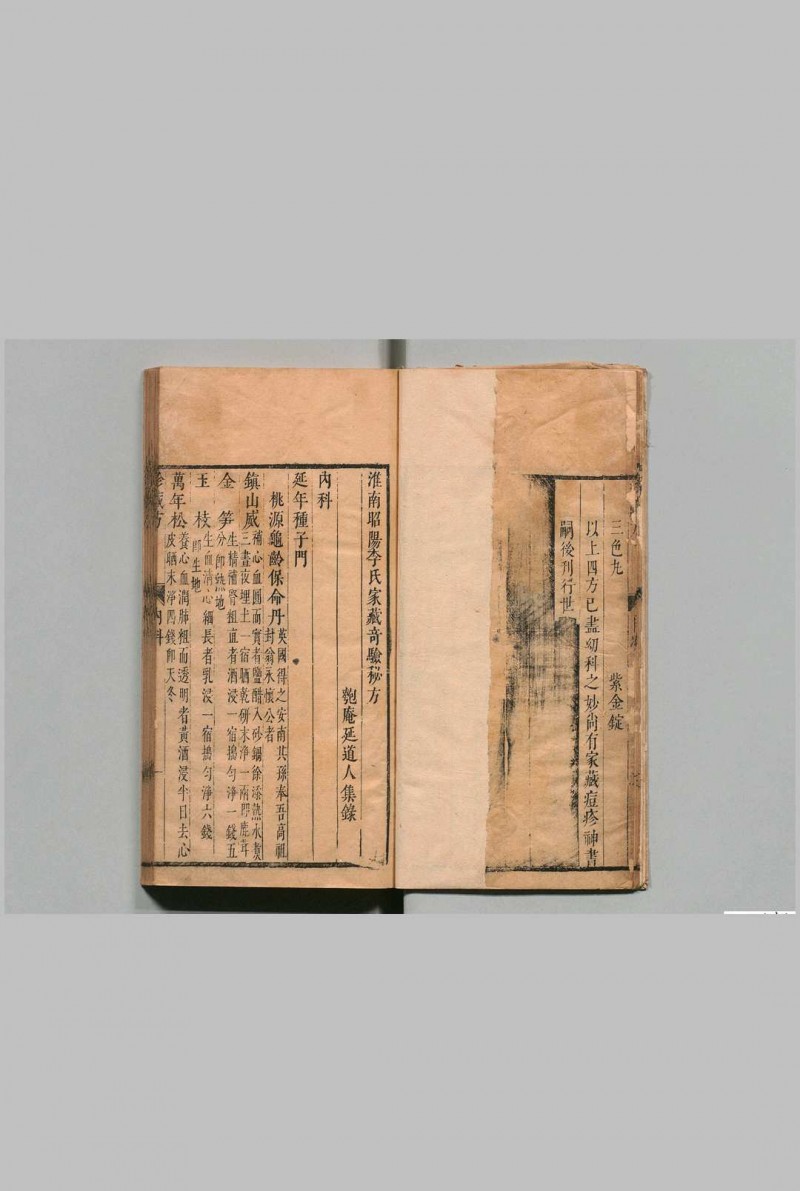 三色丸　紫金錠
以上四方已盡幼科之妙尙有家藏痘疹神書
嗣後刋行世
淮南昭陽李氏家藏奇驗秘方
匏庵廷道人集錄
內科
延年種子門
桃源龜齡保命丹英國得之安南其孫奉吾高祖
封翁永懷公者
鎮山威補心血圓而實者鹽醋入砂鍋徐添熱水煑
三晝夜埋土一宿晒乾研末淨一兩卽鹿茸
金笋生精補腎粗直者酒浸一宿搗勻淨一錢五
分卽熟地
玉枝生血淸心細長者乳浸一宿搗勻淨六錢
卽生地
萬年松養心血潤肺粗而透明者黃酒浸半日去心
皮晒末淨四錢卽天冬
珍藏方　內科